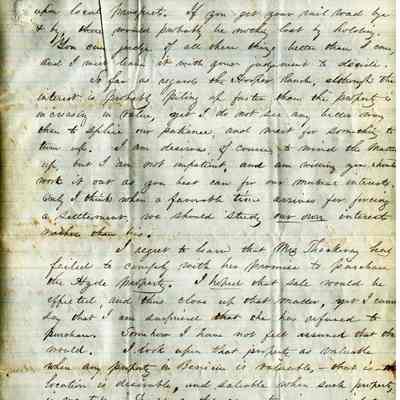 upon local prospects. If you get your rail road bye
& by, there would probably be nothing lost by holding.
You can judge of all these things better than I can,
and I must leave it with your judgement to decide.
So far as regards the Hooper Ranch, although the
interest is probably piling up faster than the property is
increasing in value, yet I do not see any better way
than to splice our patience, and wait for something to
turn up. I am desirous, of course, to wind the matter
up but I am not impatient, and am willing you should
work it out as you best can for our mutual interests.
Only I think when a favorable time arrives for forcing
a settlement, we should study our own interests
rather than his.
I regret to learn that Mrs Thackray had
failed to comply with her promise to purchase
the Hyde property. I hoped that sale would be
effected, and thus close up that matter, yet I cannot
say that I am surprised that she has refused to
purchase. Somehow I have not felt assured that she
would. I look upon that property as valuable
when any property in Benicia is valuable, that is
location is desirable, and salable when such property